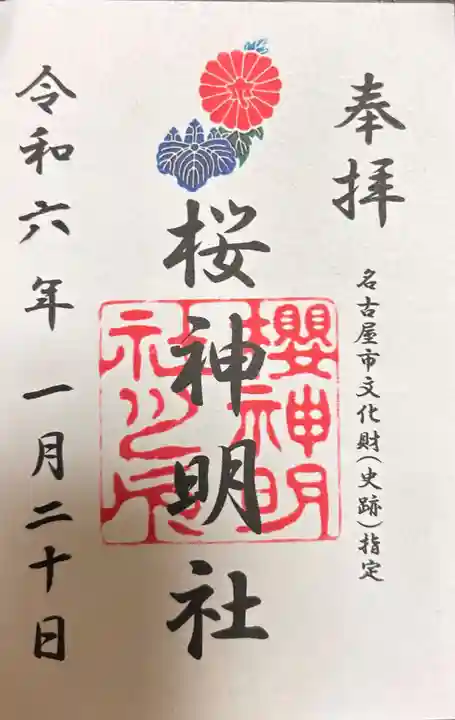 奉拝
名古屋市文化財(史跡)指定
桜神明社
櫻神明
社之印
令和六年一月二十日